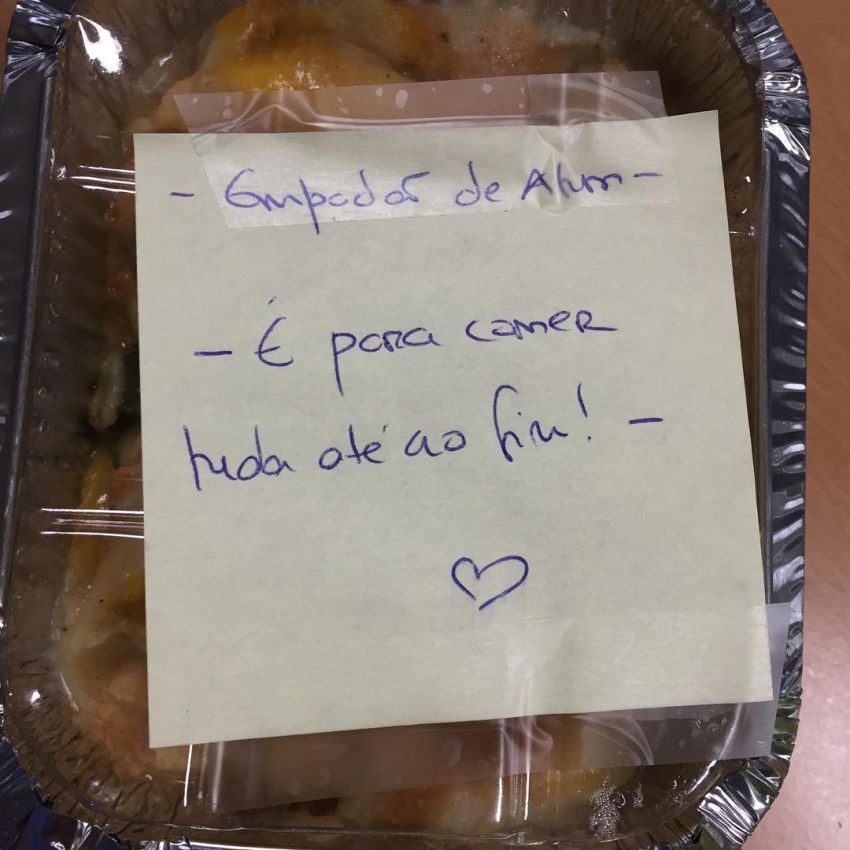 - Empadão de Atum -
- É para comer
tudo até ao fim! -